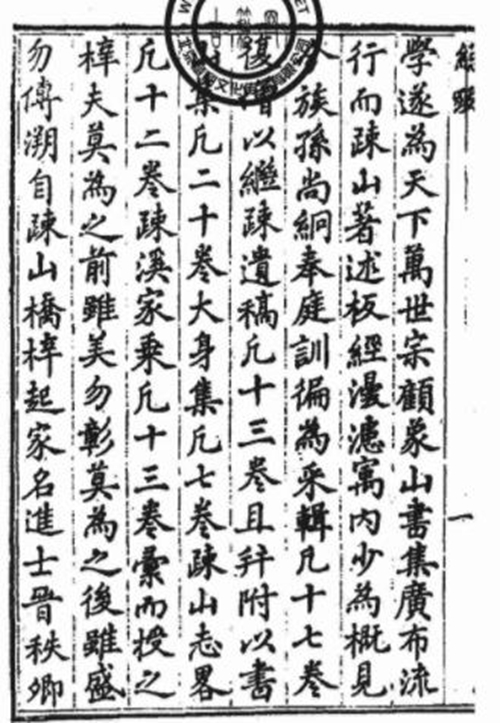 一
學遂為天下萬世宗顧象山書集廣布流
行而疎山著述板經漫漶寓內少為槪見
族孫尚絅奉庭訓徧為采輯凡十七卷
復以繼疎遺稿凡十三卷且幷附以書
集凡二十卷大身集凡七卷疎山志畧
凡十二卷疎溪家乘凡十三卷彙而授之
梓夫莫為之前雖美勿彰莫為之後雖盛
勿傳溯自疎山橋梓起家名進士晉秩卿